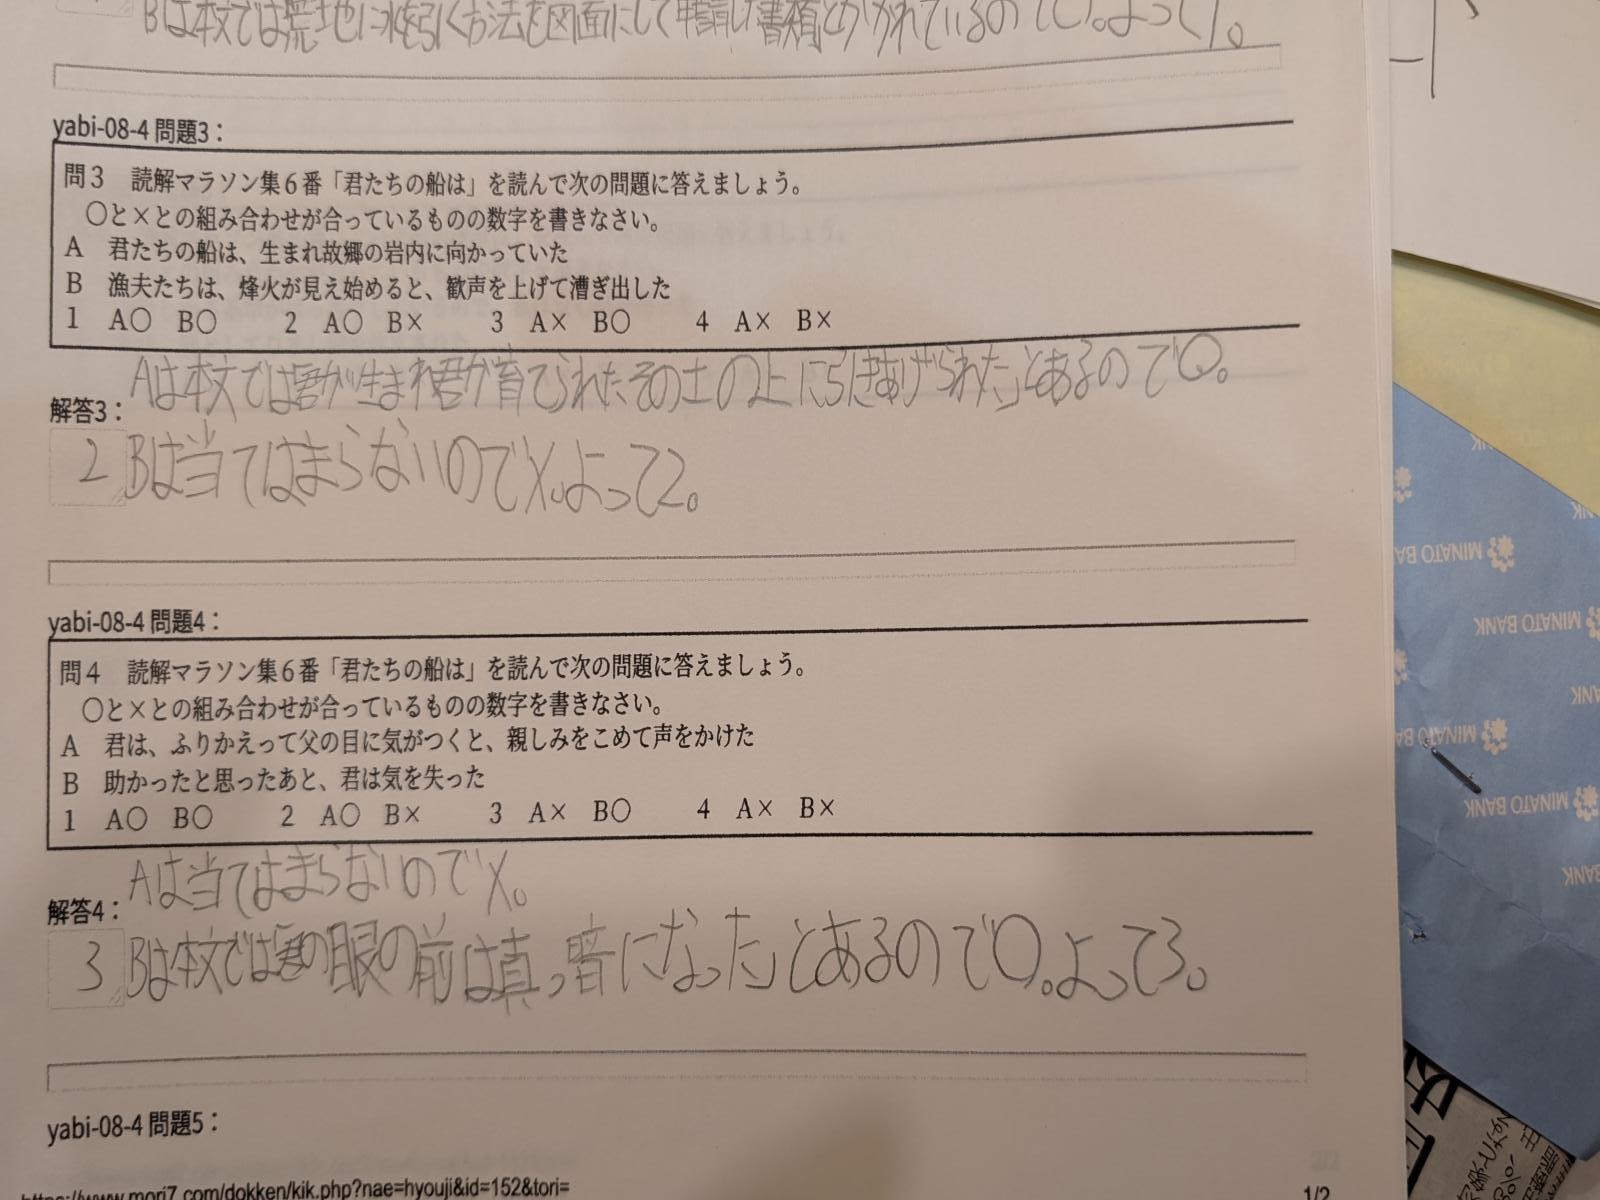 Bは本文では荒地に水を引く方法を図面にして申請した書類とかかれているので〇。よって1。
yabi-08-4 問題3：
問3　読解マラソン集6番「君たちの船は」を読んで次の問題に答えましょう。
〇と×との組み合わせが合っているものの数字を書きなさい。
A　君たちの船は、生まれ故郷の岩内に向かっていた
B　漁夫たちは、烽火が見え始めると、歓声を上げて漕ぎ出した
1　A〇　B〇　　2　A〇　B×　　3　A×　B〇　　4　A×　B×
Aは本文では君が生まれ君が育てられたその土の上に引きあげられた」とあるので〇。
解答3：
2 Bは当てはまらないので×。よって2。
yabi-08-4 問題4：
問4　読解マラソン集6番「君たちの船は」を読んで次の問題に答えましょう。
〇と×との組み合わせが合っているものの数字を書きなさい。
A　君は、ふりかえって父の目に気がつくと、親しみをこめて声をかけた
B　助かったと思ったあと、君は気を失った
1　A〇　B〇　　2　A〇　B×　　3　A×　B〇　　4　A×　B×
Aは当てはまらないので×。
解答4：
3 Bは本文では君の眼の前は真っ暗になった」とあるので〇。よって3。
yabi-08-4 問題5：
https://www.mori7.com/dokken/kik.php?nae=hyouji&id=152&tori=
1/2
MINATO BANK
MINATO BANK
MINATO BANK
MINATO BANK